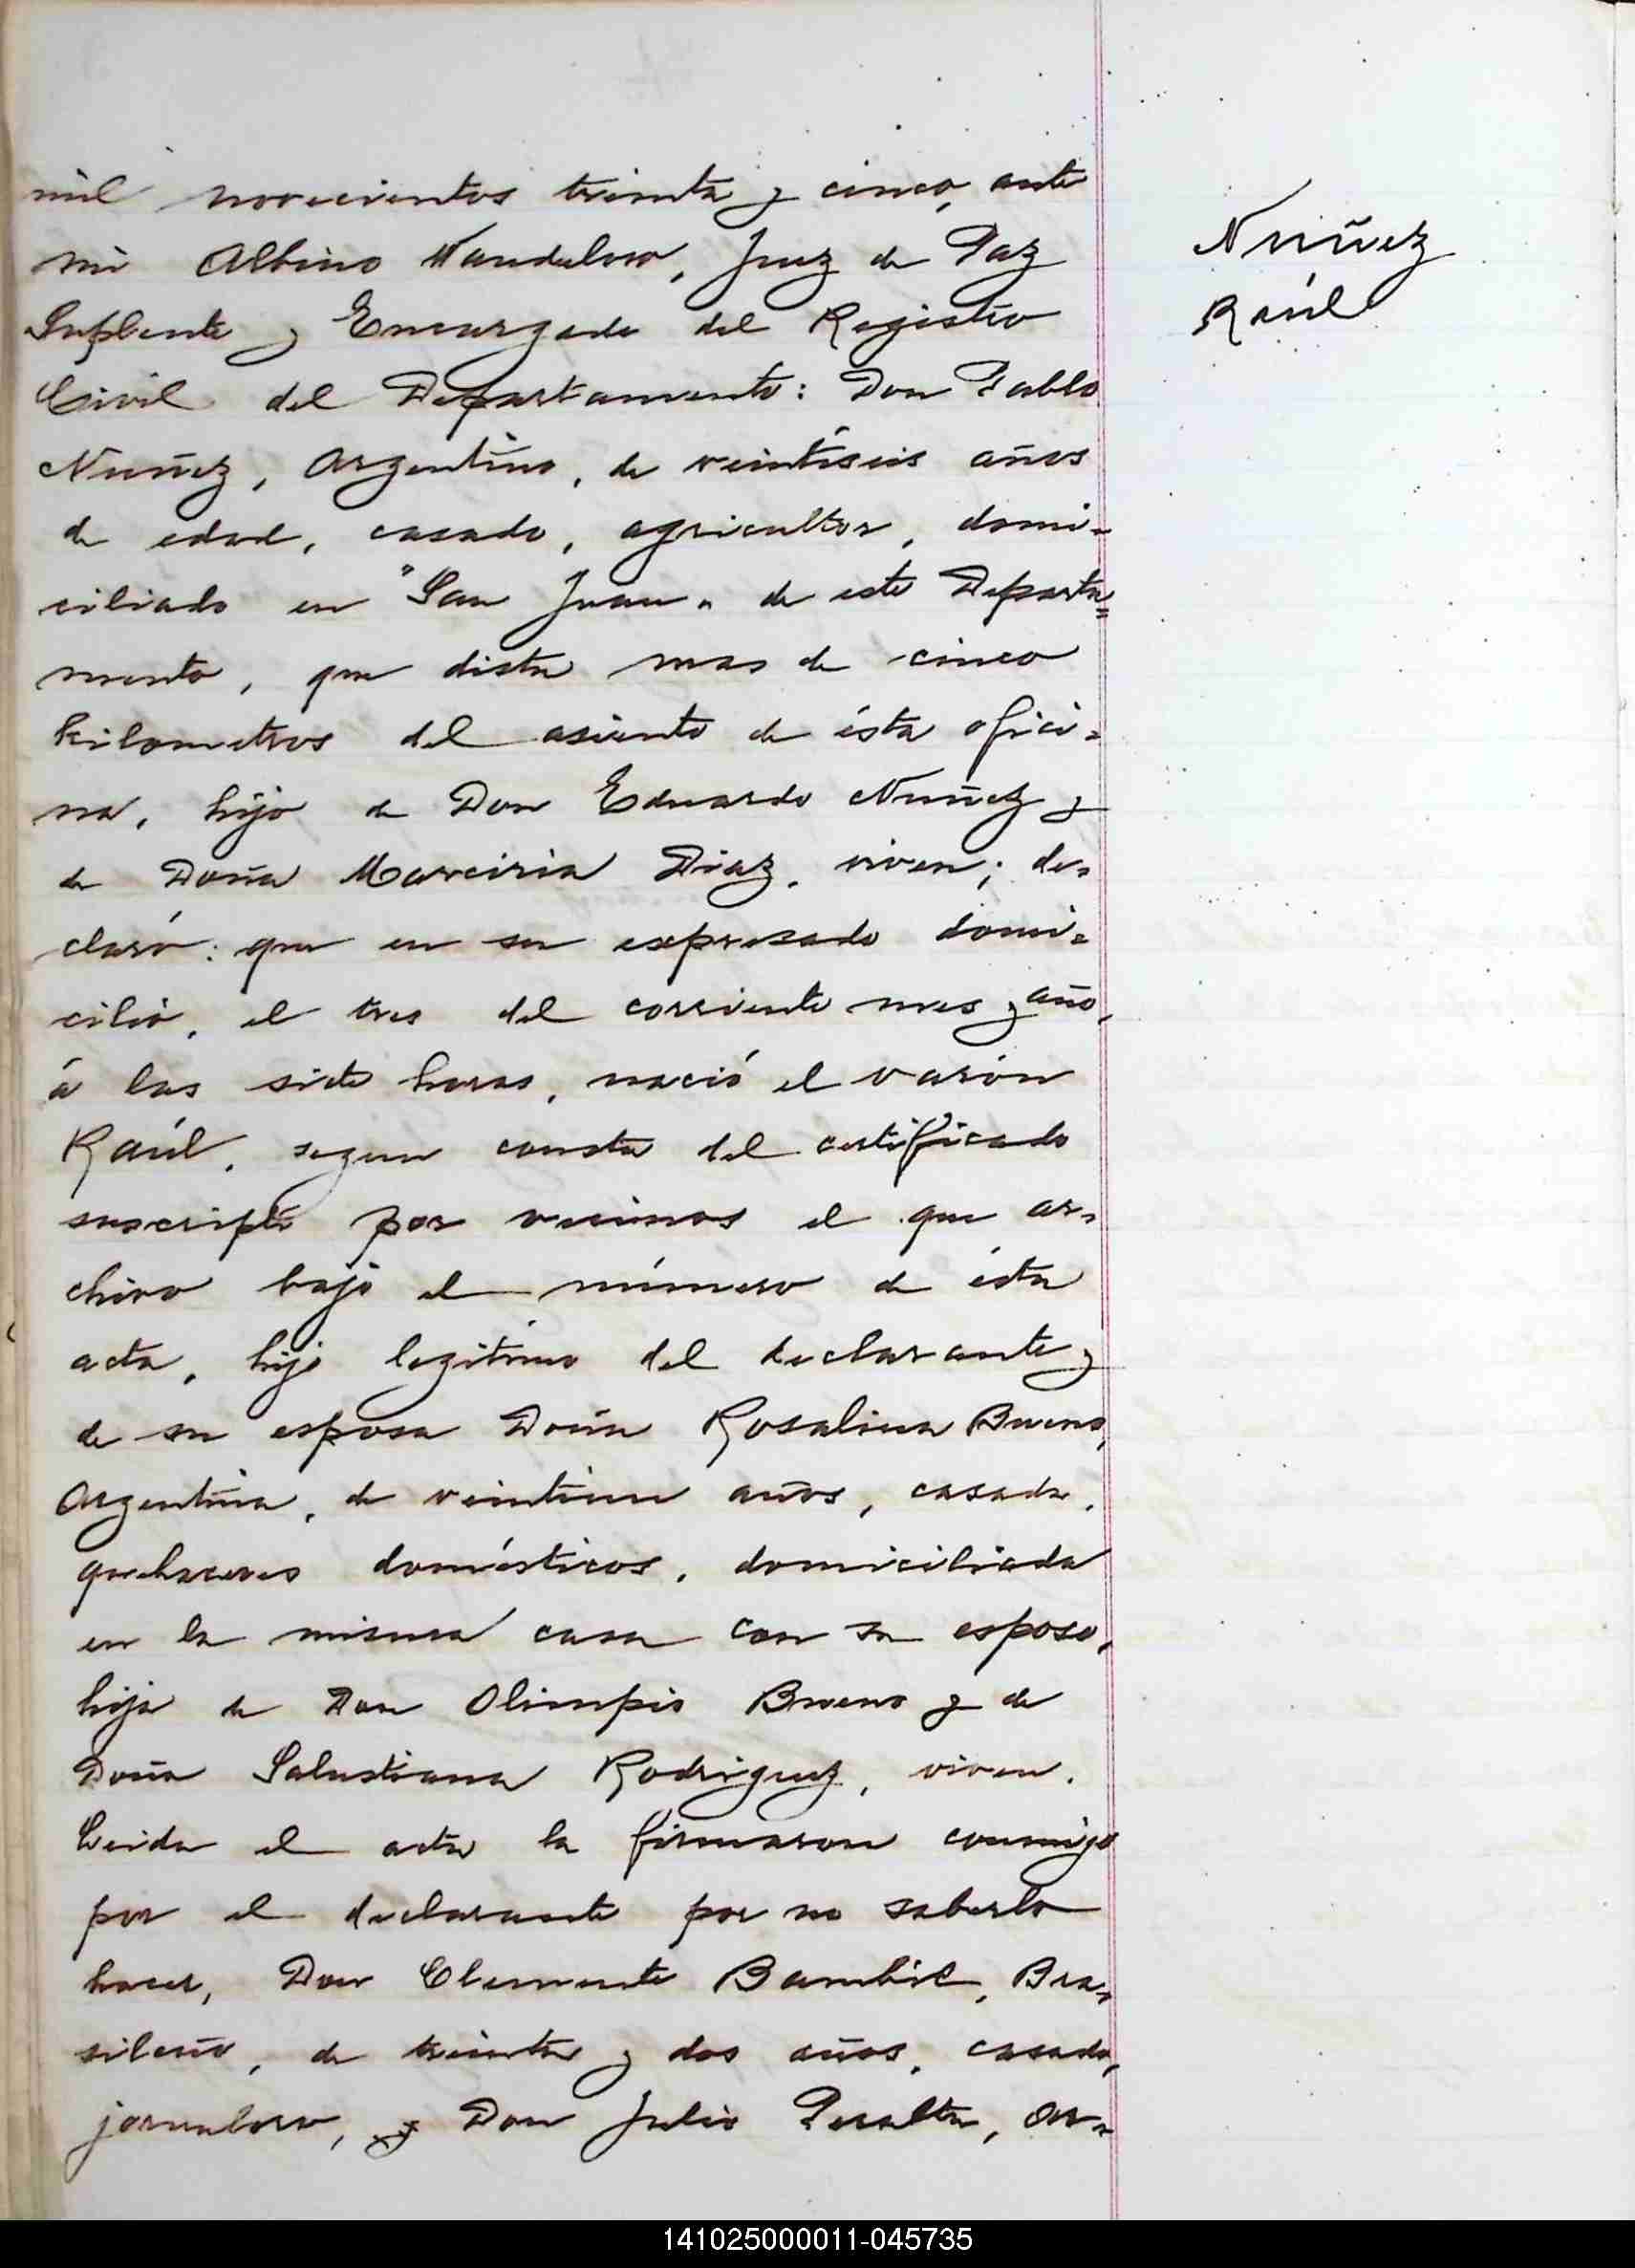 mil novecientos trinta y cinco, ante
mi Albino Manduloro, Juez de Paz
Suplente y Encargado del Registro
Civil del Departamento: Don Pablo
Nuñez, Argentino, de veintiseis años
de edad, casado, agricultor, domi=
ciliado en "San Juan" de este Departa=
mento, que dista mas de cinco
kilometros del asiento de ésta ofici=
na, hijo de Don Eduardo Nuñez y
de Doña Marciria Diaz, viven; de=
claró: que en su expresado domi=
cilio, el tres del corriente mes y año,
á las siete horas, nació el varón
Raúl, segun consta del certificado
suscripto por vecinos el que ar=
chivo bajo el número de ésta
acta, hijo legitimo del declarante y
de su esposa Doña Rosalina Bueno,
Argentina, de veintiun años, casada,
quehaceres domésticos, domiciliada
en la misma casa con su esposo,
hija de Don Olimpio Bueno y de
Doña Salustiana Rodriguez, viven.
Leida el acta la firmaron conmigo
por el declarante por no saberlo
hacer, Don Clemente Bambil, Bra=
sileño, de treinta y dos años, casado,
jornalero, y Don Julio Peralta, Ar=
Nuñez
Raúl
141025000011-045735